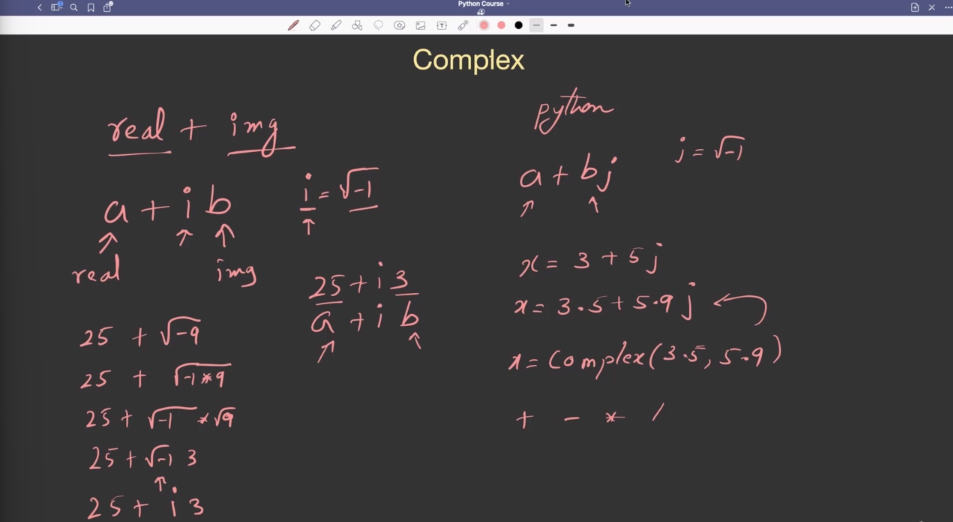 Python Course
Complex
real + img
a + i b
real img
i = √-1
25 + √-9
25 + √-1*9
25 + √-1 * √9
25 + √-1 3
25 + i 3
25 + i 3
a + i b
Python
a + bj
j = √-1
x = 3 + 5j
x = 3.5 + 5.9j
x = Complex(3.5, 5.9)
+ - * /